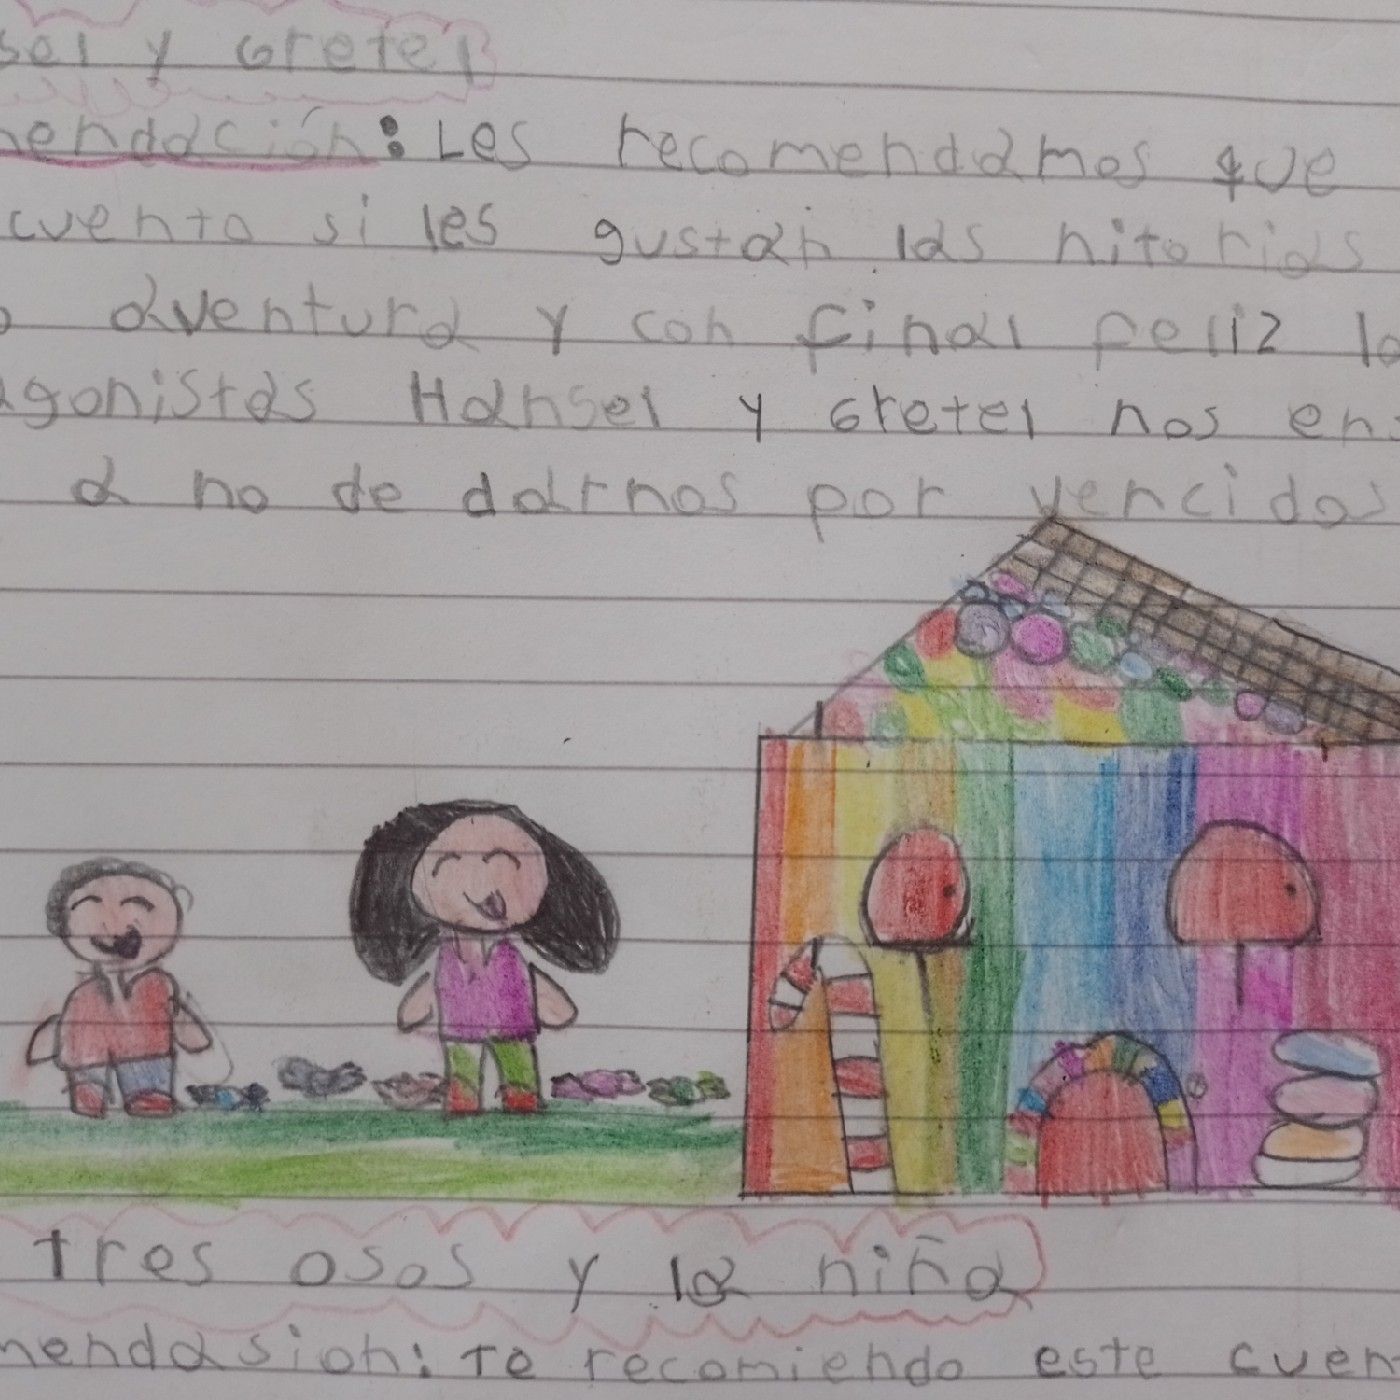 sel y Gretel
mendación: Les recomendamos que
cuento si les gustan las hitorias
aventura y con final feliz lo
agonistas Hansel y Gretel nos ens
a no de darnos por vencidos
tres osos y la niña
mendasion: Te recomiendo este cuen